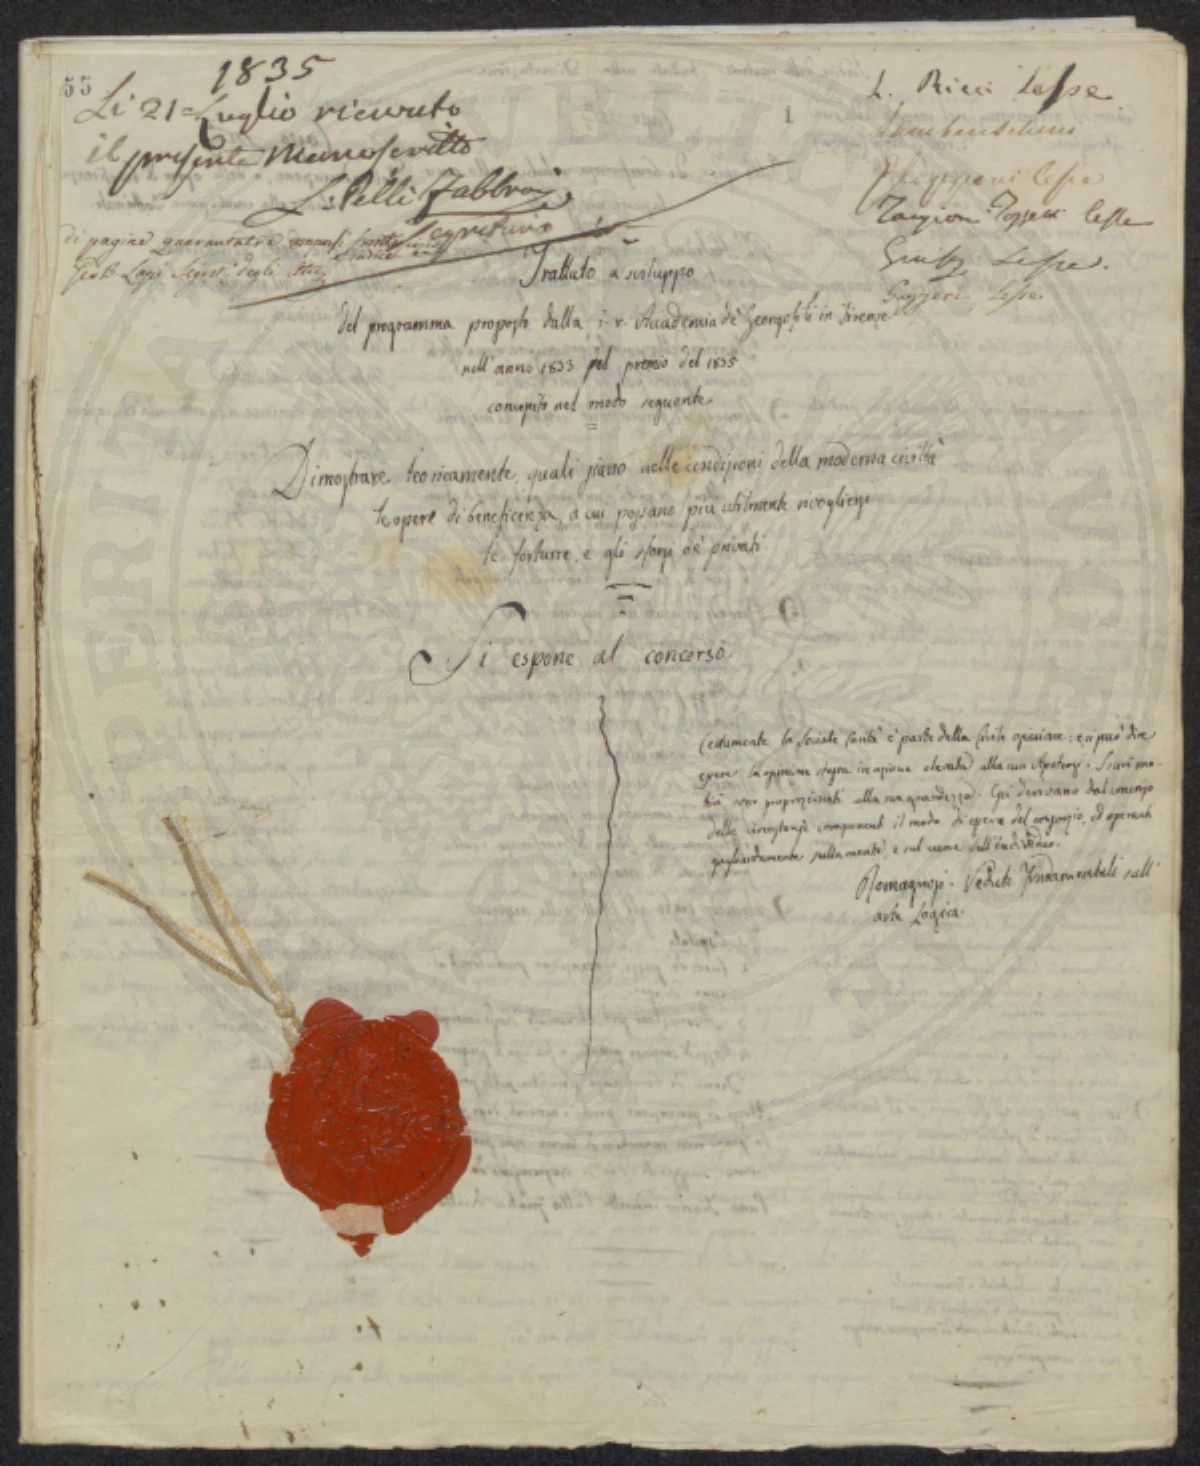 55
1835
Li 21 = Luglio ricevuto
il presente Manoscritto
L. Pelli Fabbroni
Segretario
di pagine quarantatre
Segret. degli Atti
1
L. Ricci Lesse
Lambruschini
Lesse
Targioni Tozzetti Lesse
Giusti Lesse.
Gazzeri Lesse
Trattato a sviluppo
del programma proposto dalla i. r. Accademia de' Georgofili in Firenze
nell'anno 1833 pel premio del 1835
concepito nel modo seguente
=
Dimostrare teoricamente, quali siano nelle condizioni della moderna civiltà
le opere di beneficenza, a cui possano più utilmente rivogliersi
le fortune, e gli sforzi de' privati
Si espone al concorso.
Certamente la Sociale Carità è parte della Civile opinione: e si può dire
essere la opinione stessa in azione elevata alla sua Apoteosi. I suoi mo-
tivi sono proporzionati alla sua grandezza. Essi derivano dal concorso
delle circostanze componenti il modo di essere del consorzio, ed operanti
gagliardamente sulla mente e sul cuore dell'individuo.
Romagnosi. Vedute Fondamentali sull'
arte Logica.